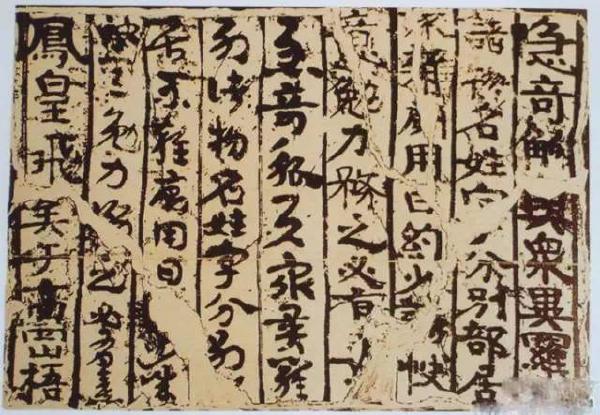 急奇觚與衆異羅
諸物名姓字分別部居
雜廁用日約少誠快
意勉力務之必有
急奇觚與衆異羅
列諸物名姓字分別
居不雜廁用日
勉力務之必
鳳皇飛矣于高山梧